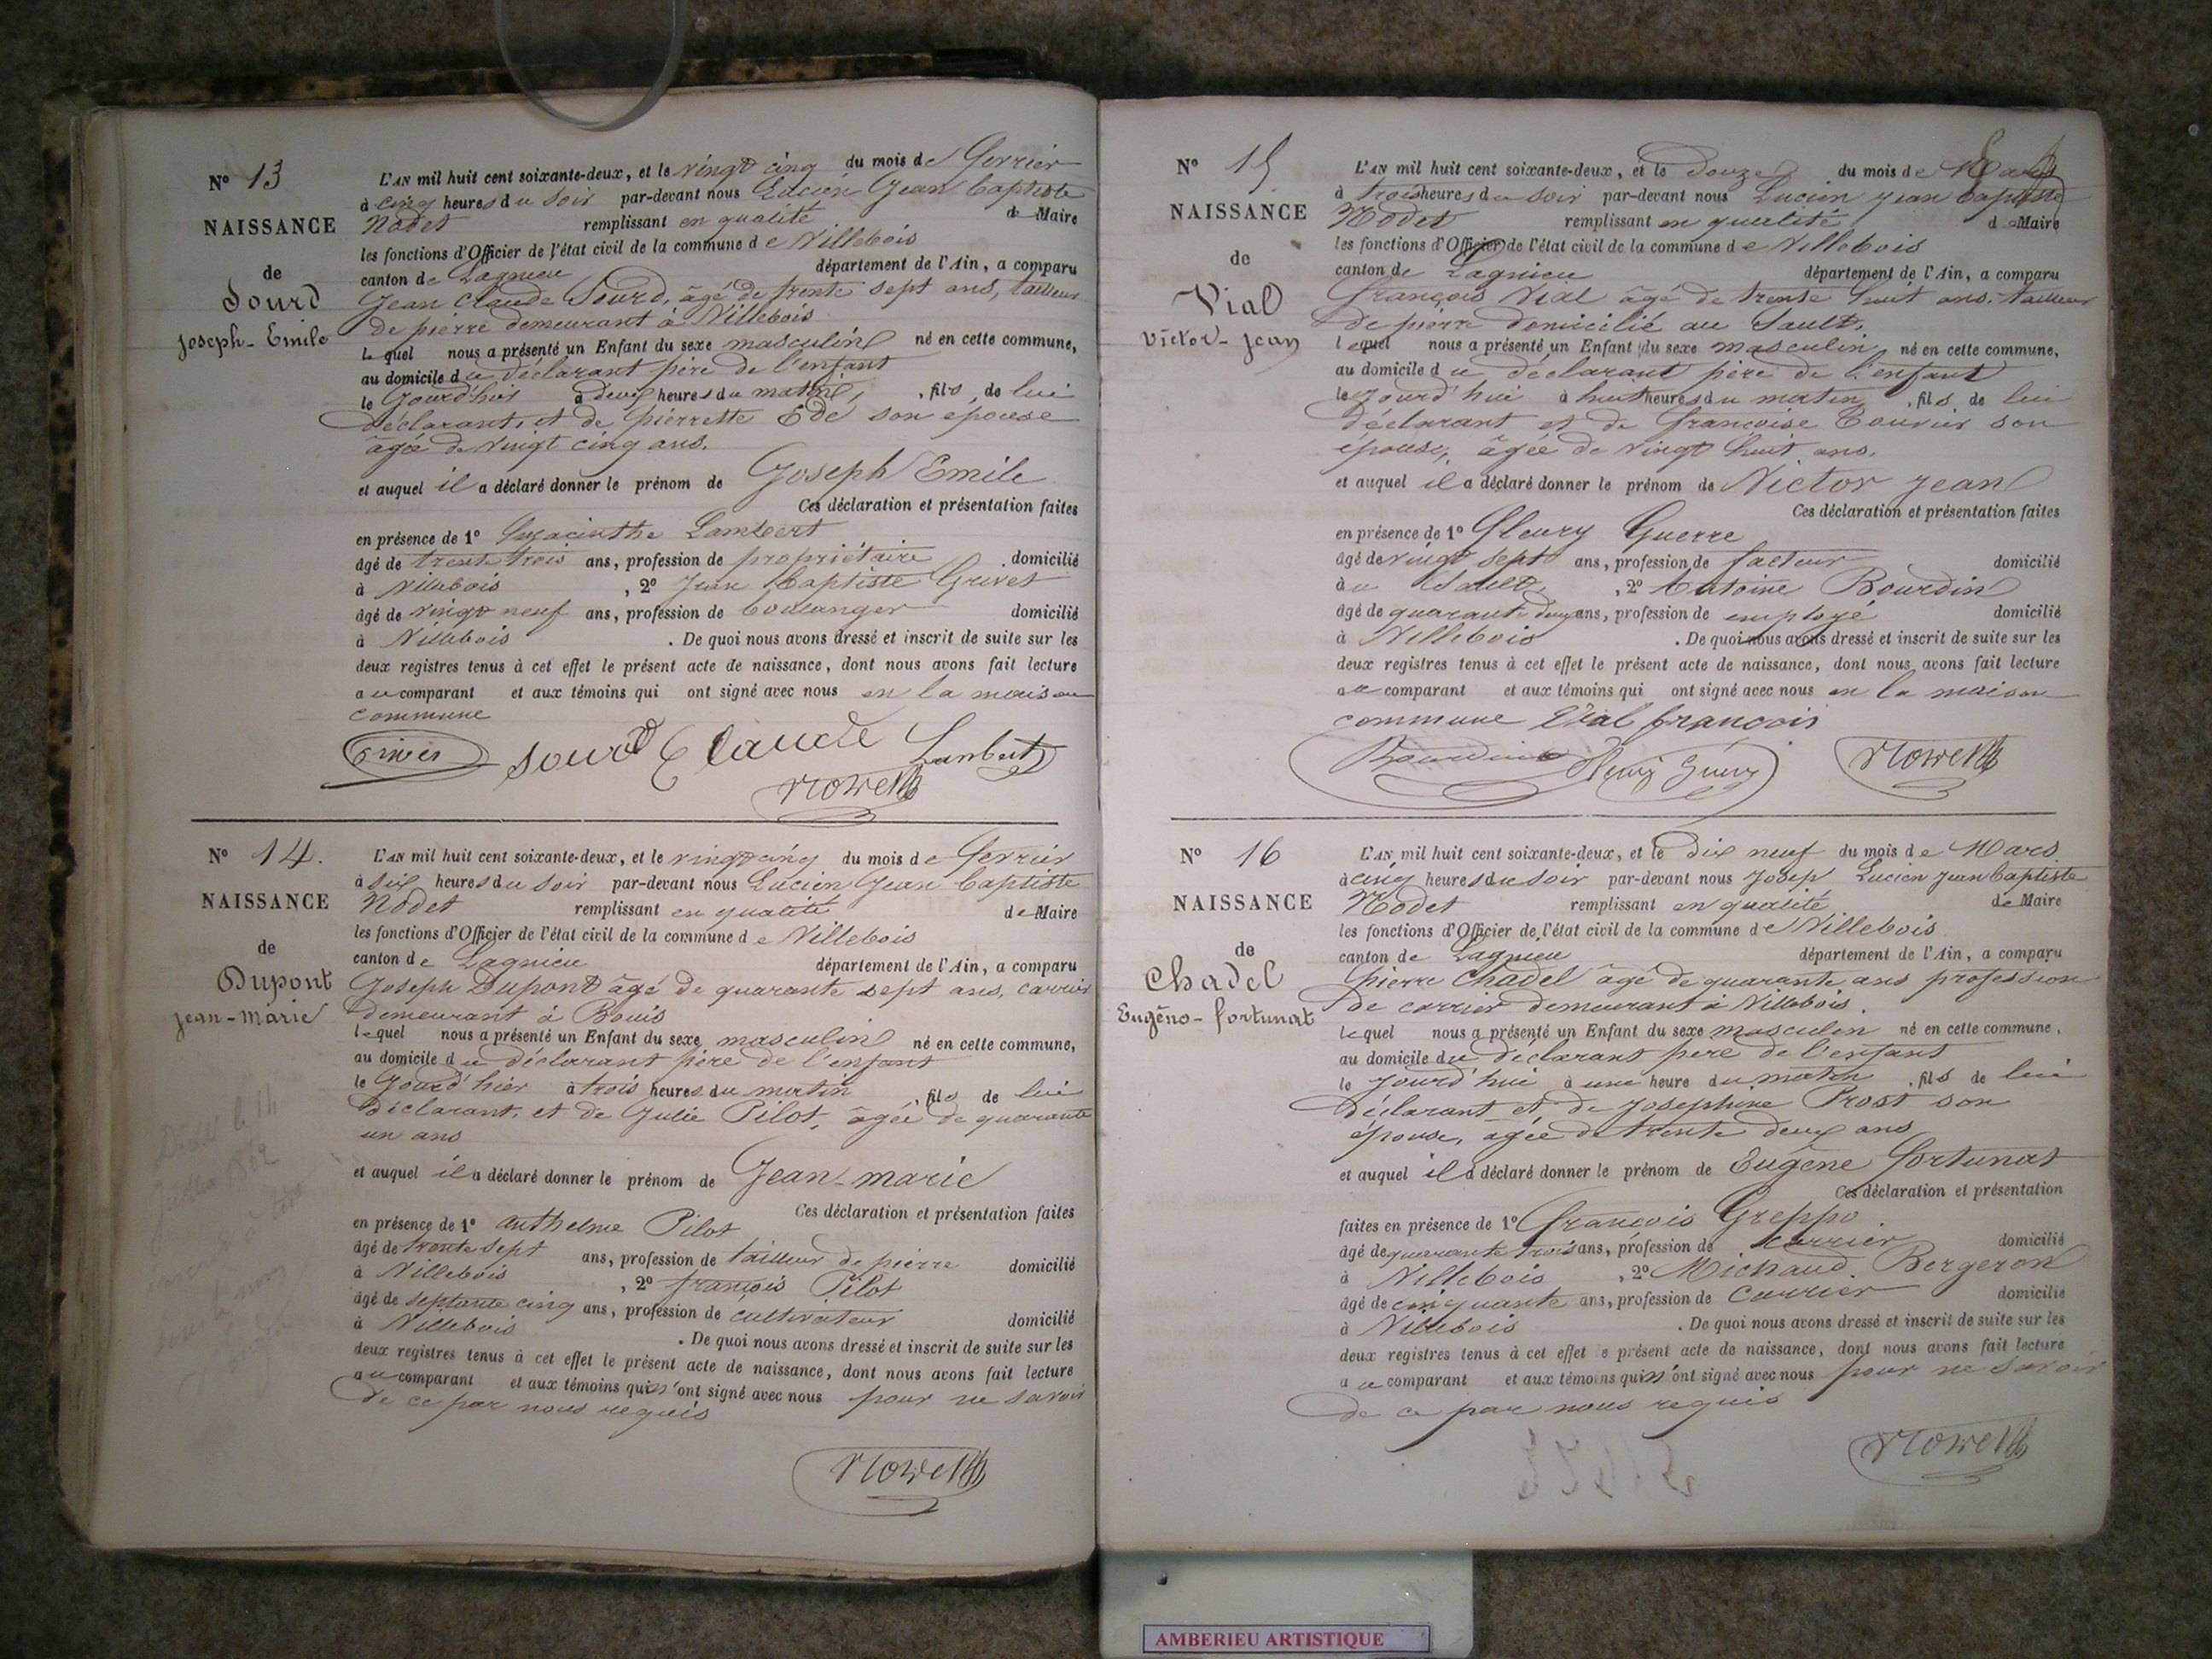 N° 13
NAISSANCE
de
Sourd
Joseph-Emile
L'AN mil huit cent soixante-deux, et le vingt cinq du mois de fevrier
à cinq heures du soir par-devant nous Lucien Jean Baptiste
Nodet remplissant en qualité de Maire
les fonctions d'Officier de l'état civil de la commune de Villebois
canton de Lagnieu département de l'Ain, a comparu
Jean Claude Sourd, âgé de trente sept ans, tailleur
de pierre demeurant à Villebois
lequel nous a présenté un Enfant du sexe masculin né en cette commune,
au domicile du déclarant père de l'enfant
le Jourd'hui à deux heures du matin, fils de lui
déclarant, et de pierrette Edé son épouse
âgée de vingt cinq ans.
et auquel il a déclaré donner le prénom de Joseph Emile
Ces déclaration et présentation faites
en présence de 1° Hyacinthe Lambert
âgé de trente trois ans, profession de propriétaire domicilié
à Villebois, 2° Jean Baptiste Grivet
âgé de vingt neuf ans, profession de boulanger domicilié
à Villebois. De quoi nous avons dressé et inscrit de suite sur les
deux registres tenus à cet effet le présent acte de naissance, dont nous avons fait lecture
au comparant et aux témoins qui ont signé avec nous en la maison
commune
sourd Claude Lambert
N° 14.
NAISSANCE
de
Dupont
Jean-Marie
L'AN mil huit cent soixante-deux, et le vingt cinq du mois de fevrier
à six heures du soir par-devant nous Lucien Jean Baptiste
Nodet remplissant en qualité de Maire
les fonctions d'Officier de l'état civil de la commune de Villebois
canton de Lagnieu département de l'Ain, a comparu
Joseph Dupont âgé de quarante sept ans, carrier
demeurant à Bouis
lequel nous a présenté un Enfant du sexe masculin né en cette commune,
au domicile du déclarant père de l'enfant
le Jourd'hier à trois heures du matin, fils de lui
déclarant, et de Julie Pilot, âgée de quarante
un ans
et auquel il a déclaré donner le prénom de Jean-marie
Ces déclaration et présentation faites
en présence de 1° anthelme Pilot
âgé de trente sept ans, profession de tailleur de pierre domicilié
à Villebois, 2° françois Pilot
âgé de septante cinq ans, profession de cultivateur domicilié
à Villebois. De quoi nous avons dressé et inscrit de suite sur les
deux registres tenus à cet effet le présent acte de naissance, dont nous avons fait lecture
au comparant et aux témoins qui n'ont signé avec nous pour ne savoir
de ce par nous requis
N° 15
NAISSANCE
de
Vial
Victor-Jean
L'AN mil huit cent soixante-deux, et le douze du mois de Mars
à trois heures du soir par-devant nous Lucien Jean Baptiste
Nodet remplissant en qualité de Maire
les fonctions d'Officier de l'état civil de la commune de Villebois
canton de Lagnieu département de l'Ain, a comparu
François Vial âgé de trente huit ans, tailleur
de pierre domicilié au Sault,
lequel nous a présenté un Enfant du sexe masculin né en cette commune,
au domicile du déclarant père de l'enfant
le Jourd'hui à huit heures du matin, fils de lui
déclarant et de françoise Bouvier son
épouse, âgée de vingt huit ans.
et auquel il a déclaré donner le prénom de Victor Jean
Ces déclaration et présentation faites
en présence de 1° Fleury Guerre
âgé de vingt sept ans, profession de facteur domicilié
au Sault, 2° Antoine Bourdin
âgé de quarante deux ans, profession de employé domicilié
à Villebois. De quoi nous avons dressé et inscrit de suite sur les
deux registres tenus à cet effet le présent acte de naissance, dont nous avons fait lecture
au comparant et aux témoins qui ont signé avec nous en la maison
commune Vial françois
N° 16
NAISSANCE
de
Chadel
Eugène-fortunat
L'AN mil huit cent soixante-deux, et le dix neuf du mois de Mars
à cinq heures du soir par-devant nous Josep Lucien Jean Baptiste
Nodet remplissant en qualité de Maire
les fonctions d'Officier de l'état civil de la commune de Villebois
canton de Lagnieu département de l'Ain, a comparu
pierre Chadel âgé de quarante ans profession
de carrier demeurant à Villebois.
lequel nous a présenté un Enfant du sexe masculin né en cette commune,
au domicile du déclarant père de l'enfant
le Jourd'hui à une heure du matin, fils de lui
déclarant et de Josephine Prost son
épouse, âgée de trente deux ans
et auquel il a déclaré donner le prénom de Eugène fortunat
Ces déclaration et présentation
faites en présence de 1° françois Greppo
âgé de quarante trois ans, profession de carrier domicilié
à Villebois, 2° Michaud Bergeron
âgé de cinquante ans, profession de carrier domicilié
à Villebois. De quoi nous avons dressé et inscrit de suite sur les
deux registres tenus à cet effet le présent acte de naissance, dont nous avons fait lecture
au comparant et aux témoins qui n'ont signé avec nous pour ne savoir
de ce par nous requis
AMBERIEU ARTISTIQUE